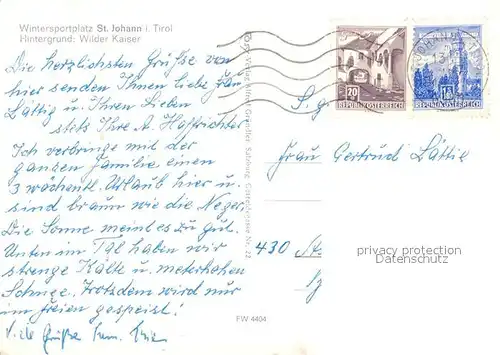 Wintersportplatz St. Johann i. Tirol
Hintergrund: Wilder Kaiser
Die herzlichsten Grüße von
hier senden Ihnen liebe Frau
Lättig u. Ihren Lieben
stets Ihre A. Haffrichter
Ich verbringe mit der
ganzen Familie einen
3 wöchentl. Urlaub hier u.
sind braun wie die Neger.
Die Sonne meint es zu gut.
Unten im Tal haben wir
strenge Kälte u. meterhohen
Schnee. Trotzdem wird nur
im freien gespeist!
Viele Grüße
Verlag Alfred Gründler, Salzburg,
FW 4404
20
REPUBLIK ÖSTERREICH
REPUBLIK ÖSTERREICH
S.g.
Frau Gertrud Lättig
430
privacy protection
Datenschutz